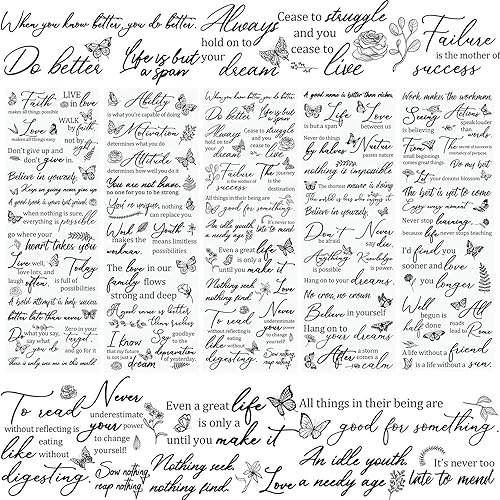 When you know better you do better.
Do better
Life is but
a span
Always
hold on to
your dream
Cease to struggle
and you
cease to
live
Failure
is the mother of
success
Faith
makes all things possible
LIVE
in love
Love
makes all things easy
WALK
by faith
not by
sight.
Don't give up and
don't give in.
Believe in yourself.
Keep on going never give up.
A good book is your best friend.
when nothing is sure,
everything is possible
go where your
heart takes you
Live well,
love lots, and
laugh often
Today
is full of
possibilities
A bold attempt is half success
better late than never
Do what you say,
say what
you do
Zero in your
target
and go for it
There is only one me in this world
Ability
is what you're capable of doing
Motivation
determines what you do
Attitude
determines how well you do it
You are not alone.
no one for you to be strong
You're unique,
nothing
can replace you
Work
makes the
workman.
Youth
means limitless
possibilities
The love in our
family flows
strong and deep
A good name is better
than riches
I know
that my future
is not just a
dream
Say no to the
depravation
of yesterday.
When you know better you do better.
Do better
Life is but
a span
Always
hold on to
your dream
Cease to struggle
and you
cease to
live
Failure
is the mother of
success
The journey
is the
destination
All things in their being are
good for something.
An idle youth,
a needy age
It's never too
late to mend
Even a great life
is only a
until you make it
Nothing seek,
nothing find.
Love
To read
without reflecting is
like eating
without
digesting.
Never
underestimate
your power
to change
yourself!
Sow nothing,
reap nothing.
A good name is better than riches.
Life
is but a span
Love
between us
Never do things
by halves
Nature
passes nature
nothing is impossible
The shortest answer is doing
The world is his who enjoys it
Believe in yourself.
Don't
be afraid
Never
say die.
Anything
is possible
Knowledge
is power.
Hang on to your dreams.
No cross, no crown
Believe in yourself
Hang on to
your dreams.
After
a storm
comes a
calm
Work makes the workman.
Seeing
is believing
Actions
speak louder
than
words
From
small
beginnings
come great things.
The secret of success is
constancy of
purpose.
Do my best
Let your dreams blossom
The best is yet to come
Enjoy every moment
Never stop learning,
because life never stops teaching
I'd find you
sooner and love
you longer
Well
begun is
half done
All
roads
lead to
Rome
A life without a
friend
is a life without a sun.
To read
without reflecting is
like eating
without
digesting.
Never
underestimate
your power
to change
yourself!
Sow nothing,
reap nothing.
Even a great life
is only a
until you make it
Nothing seek,
nothing find.
Love
All things in their being are
good for something.
An idle youth,
a needy age
It's never too
late to mend